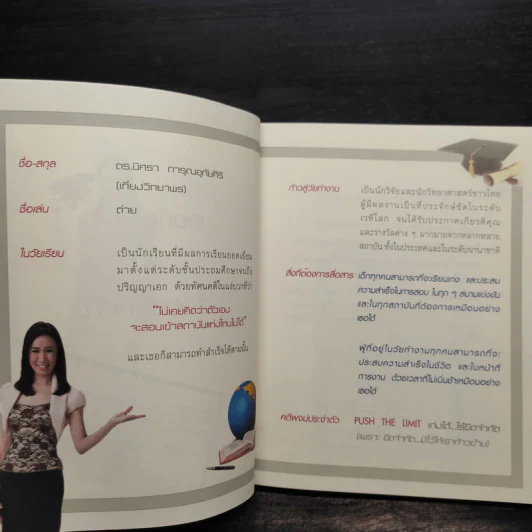 ชื่อ-สกุล ดร.นิศรา การุณอุทัยศิริ
(เที่ยงวิทยาพร)
ชื่อเล่น ต่าย
ในวัยเรียน เป็นนักเรียนที่มีผลการเรียนยอดเยี่ยม
มาตั้งแต่ระดับชั้นประถมศึกษาจนถึง
ปริญญาเอก ด้วยทัศนคติในแง่บวกที่ว่า
"ไม่เคยคิดว่าตัวเอง
จะสอบเข้าสถาบันแห่งไหนไม่ได้"
และเธอก็สามารถทำสำเร็จได้ตามนั้น
ก้าวสู่วัยทำงาน เป็นนักวิจัยและนักวิทยาศาสตร์ชาวไทย
ผู้มีผลงานเป็นที่ประจักษ์ชัดในระดับ
เวทีโลก จนได้รับประกาศเกียรติคุณ
และรางวัลต่าง ๆ มากมายจากหลากหลาย
สถาบัน ทั้งในประเทศและในระดับนานาชาติ
สิ่งที่ต้องการสื่อสาร เด็กทุกคนสามารถที่จะเรียนเก่ง และประสบ
ความสำเร็จในการสอบ ในทุก ๆ สนามแข่งขัน
และในทุกสถาบันที่ต้องการเหมือนอย่าง
เธอได้
ผู้ที่อยู่ในวัยทำงานทุกคนสามารถที่จะ
ประสบความสำเร็จในชีวิต และในหน้าที่
การงาน ด้วยเวลาที่ไม่เนิ่นช้าเหมือนอย่าง
เธอได้
คติพจน์ประจำตัว PUSH THE LIMIT เก่งได้...ไร้ขีดจำกัด
(เพราะ ขีดจำกัด...มีไว้ให้เราก้าวข้าม)